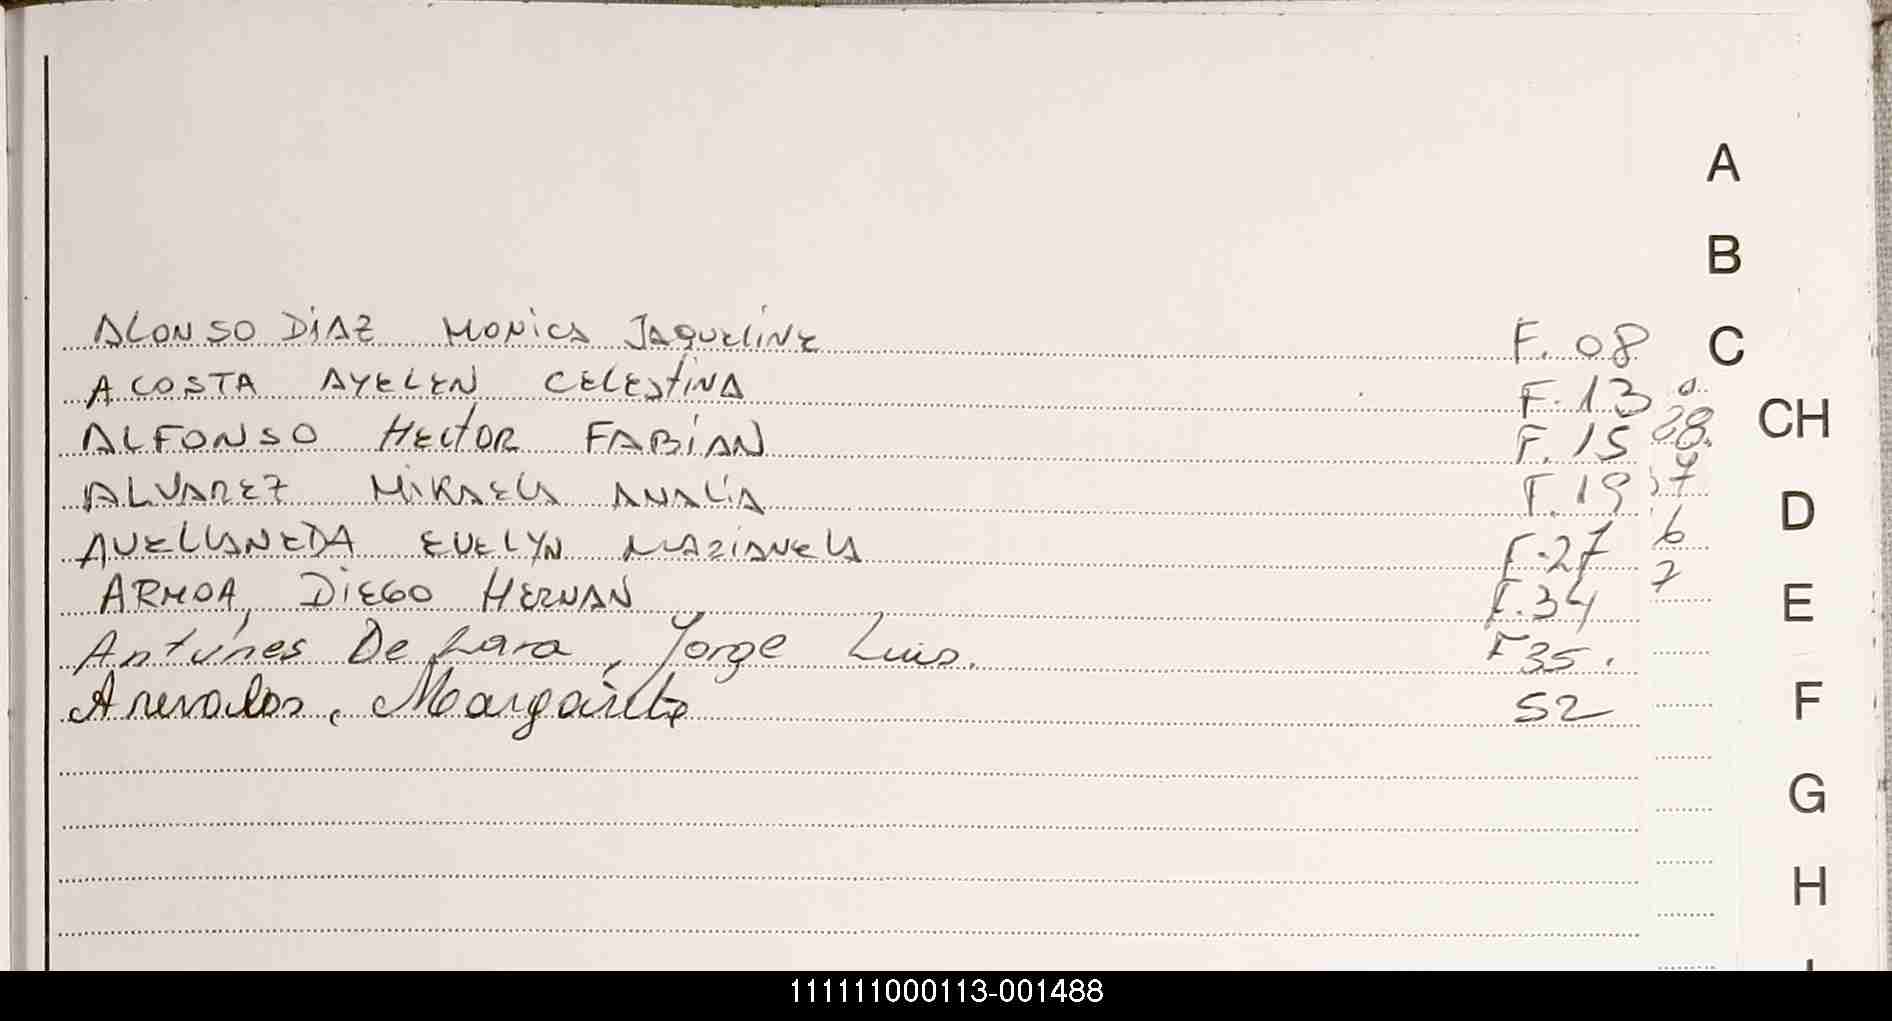 ALONSO DiAZ MONicA JAQUELiNE F. 08
ACOSTA AYELEN CELEStiNA F. 13
ALFONSO HECtOR FABiAN F. 15
ALVAREZ MiKAELA ANALiA F. 19
AVELLANEDA EVELYN MARiANELA F. 27
ARMOA, DiEGO HERNAN F. 34
Antúnes De Lara, Jorge Luis. F 35.
Arevalos, Margarita 52
A
B
C
CH
D
E
F
G
H
28
7
6
7
111111000113-001488